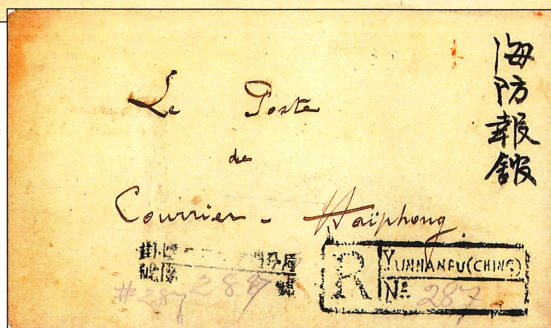 海防報館
Le Poste
de
Courrier - Haïphong
掛號
號
#287 287
R YUNNANFU(CHINE)
Nº 287